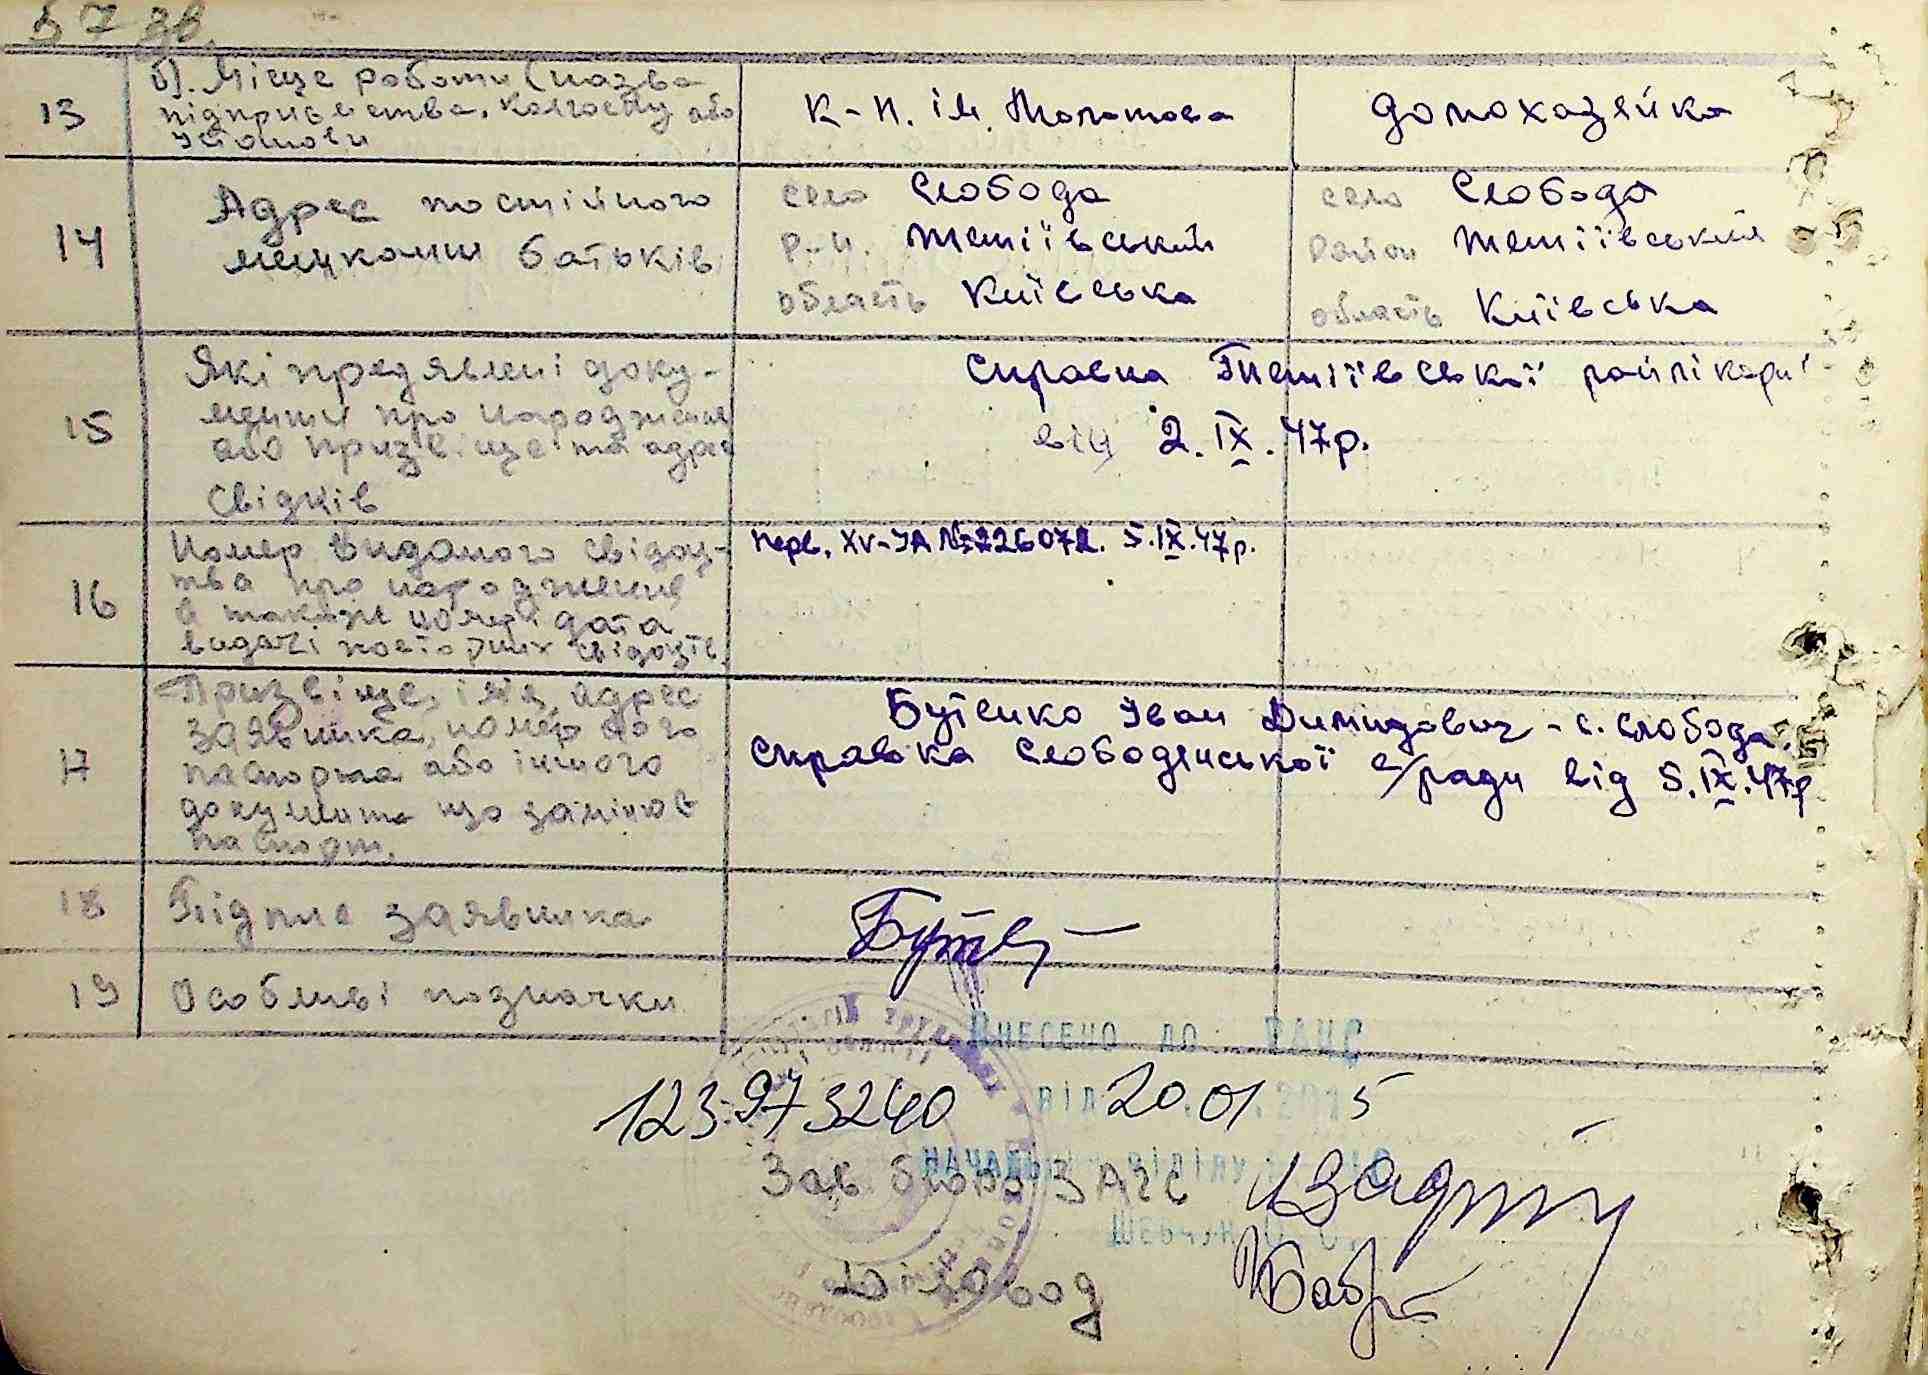 13
б). Місце роботи (назва
підприємства, колгоспу або
установи
К-п. ім. Молотова
домохазяйка
14
Адрес постійного
мешкання батьків
село Слобода
р-н. Тетіївський
область Київська
село Слобода
район Тетіївський
область Київська
15
Які предявлені доку-
менти про народження
або призвіще та адрес
свідків
Справка Тетіївської райлікарні
від 2.IX.47р.
16
Номер виданого свідоц-
тва про народження
а також номер і дата
видачі повторних свідоцтв.
перв. XV-УА № 226072. 5.IX.47р.
17
Призвіще, імя, адрес
заявника, номер його
паспорта або іншого
документа що замінює
паспорт.
Бутенко Іван Димидович - с. Слобода.
Справка Слободянської с/ради від 5.IX.47р
18
Підпис заявника
19
Особливі позначки
Внесено до РАЦС
123.973240 від 20.01 5
Зав бюро ЗАГС
Діловод